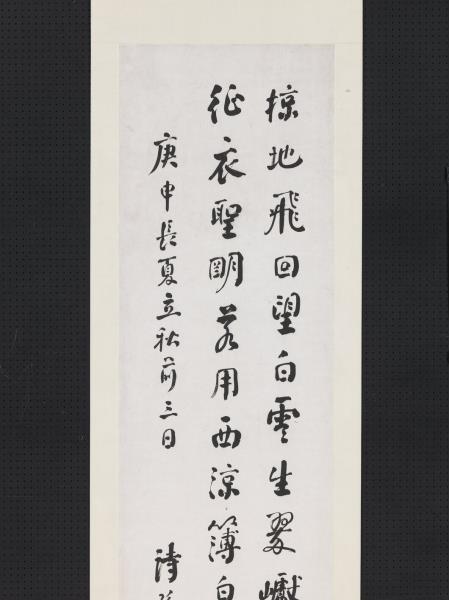 掠地飛回望白雲生翠巘
征衣聖明若用西涼簿白
庚申長夏立秋前三日
詩